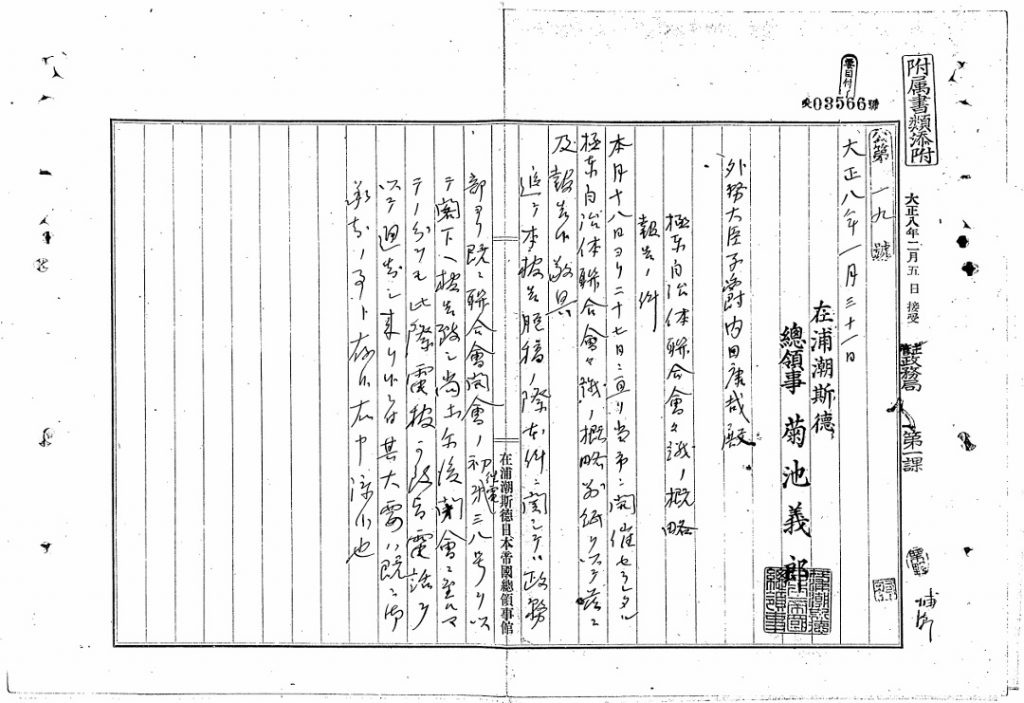 附属書類添附
要目付
03566號
大正八年二月五日接受
主管政務局
第一課
公第一九號
大正八年一月三十一日
在浦潮斯德
總領事 菊池義郎
外務大臣子爵内田康哉殿
極東自治体聯合會々議ノ概略
報告ノ件
本月十八日ヨリ二十七日ニ亘リ當市ニ開催セラレタル
極東自治体聯合會々議ノ概略別紙ノ以テ茲ニ
及報告候敬具
追テ本報告脱稿ノ際本件ニ関シテハ政務
部ヨリ既ニ聯合會開會ノ初往電第三八号ヲ以
テ閣下ヘ報告致シ尚ホ爾後開會ニ至ルマ
テノ分モ此際電報
以テ通知シ来リ候ニ付其大要ハ既ニ御
承知ノ事ト存候右申添候也
在浦潮斯德日本帝國總領事館